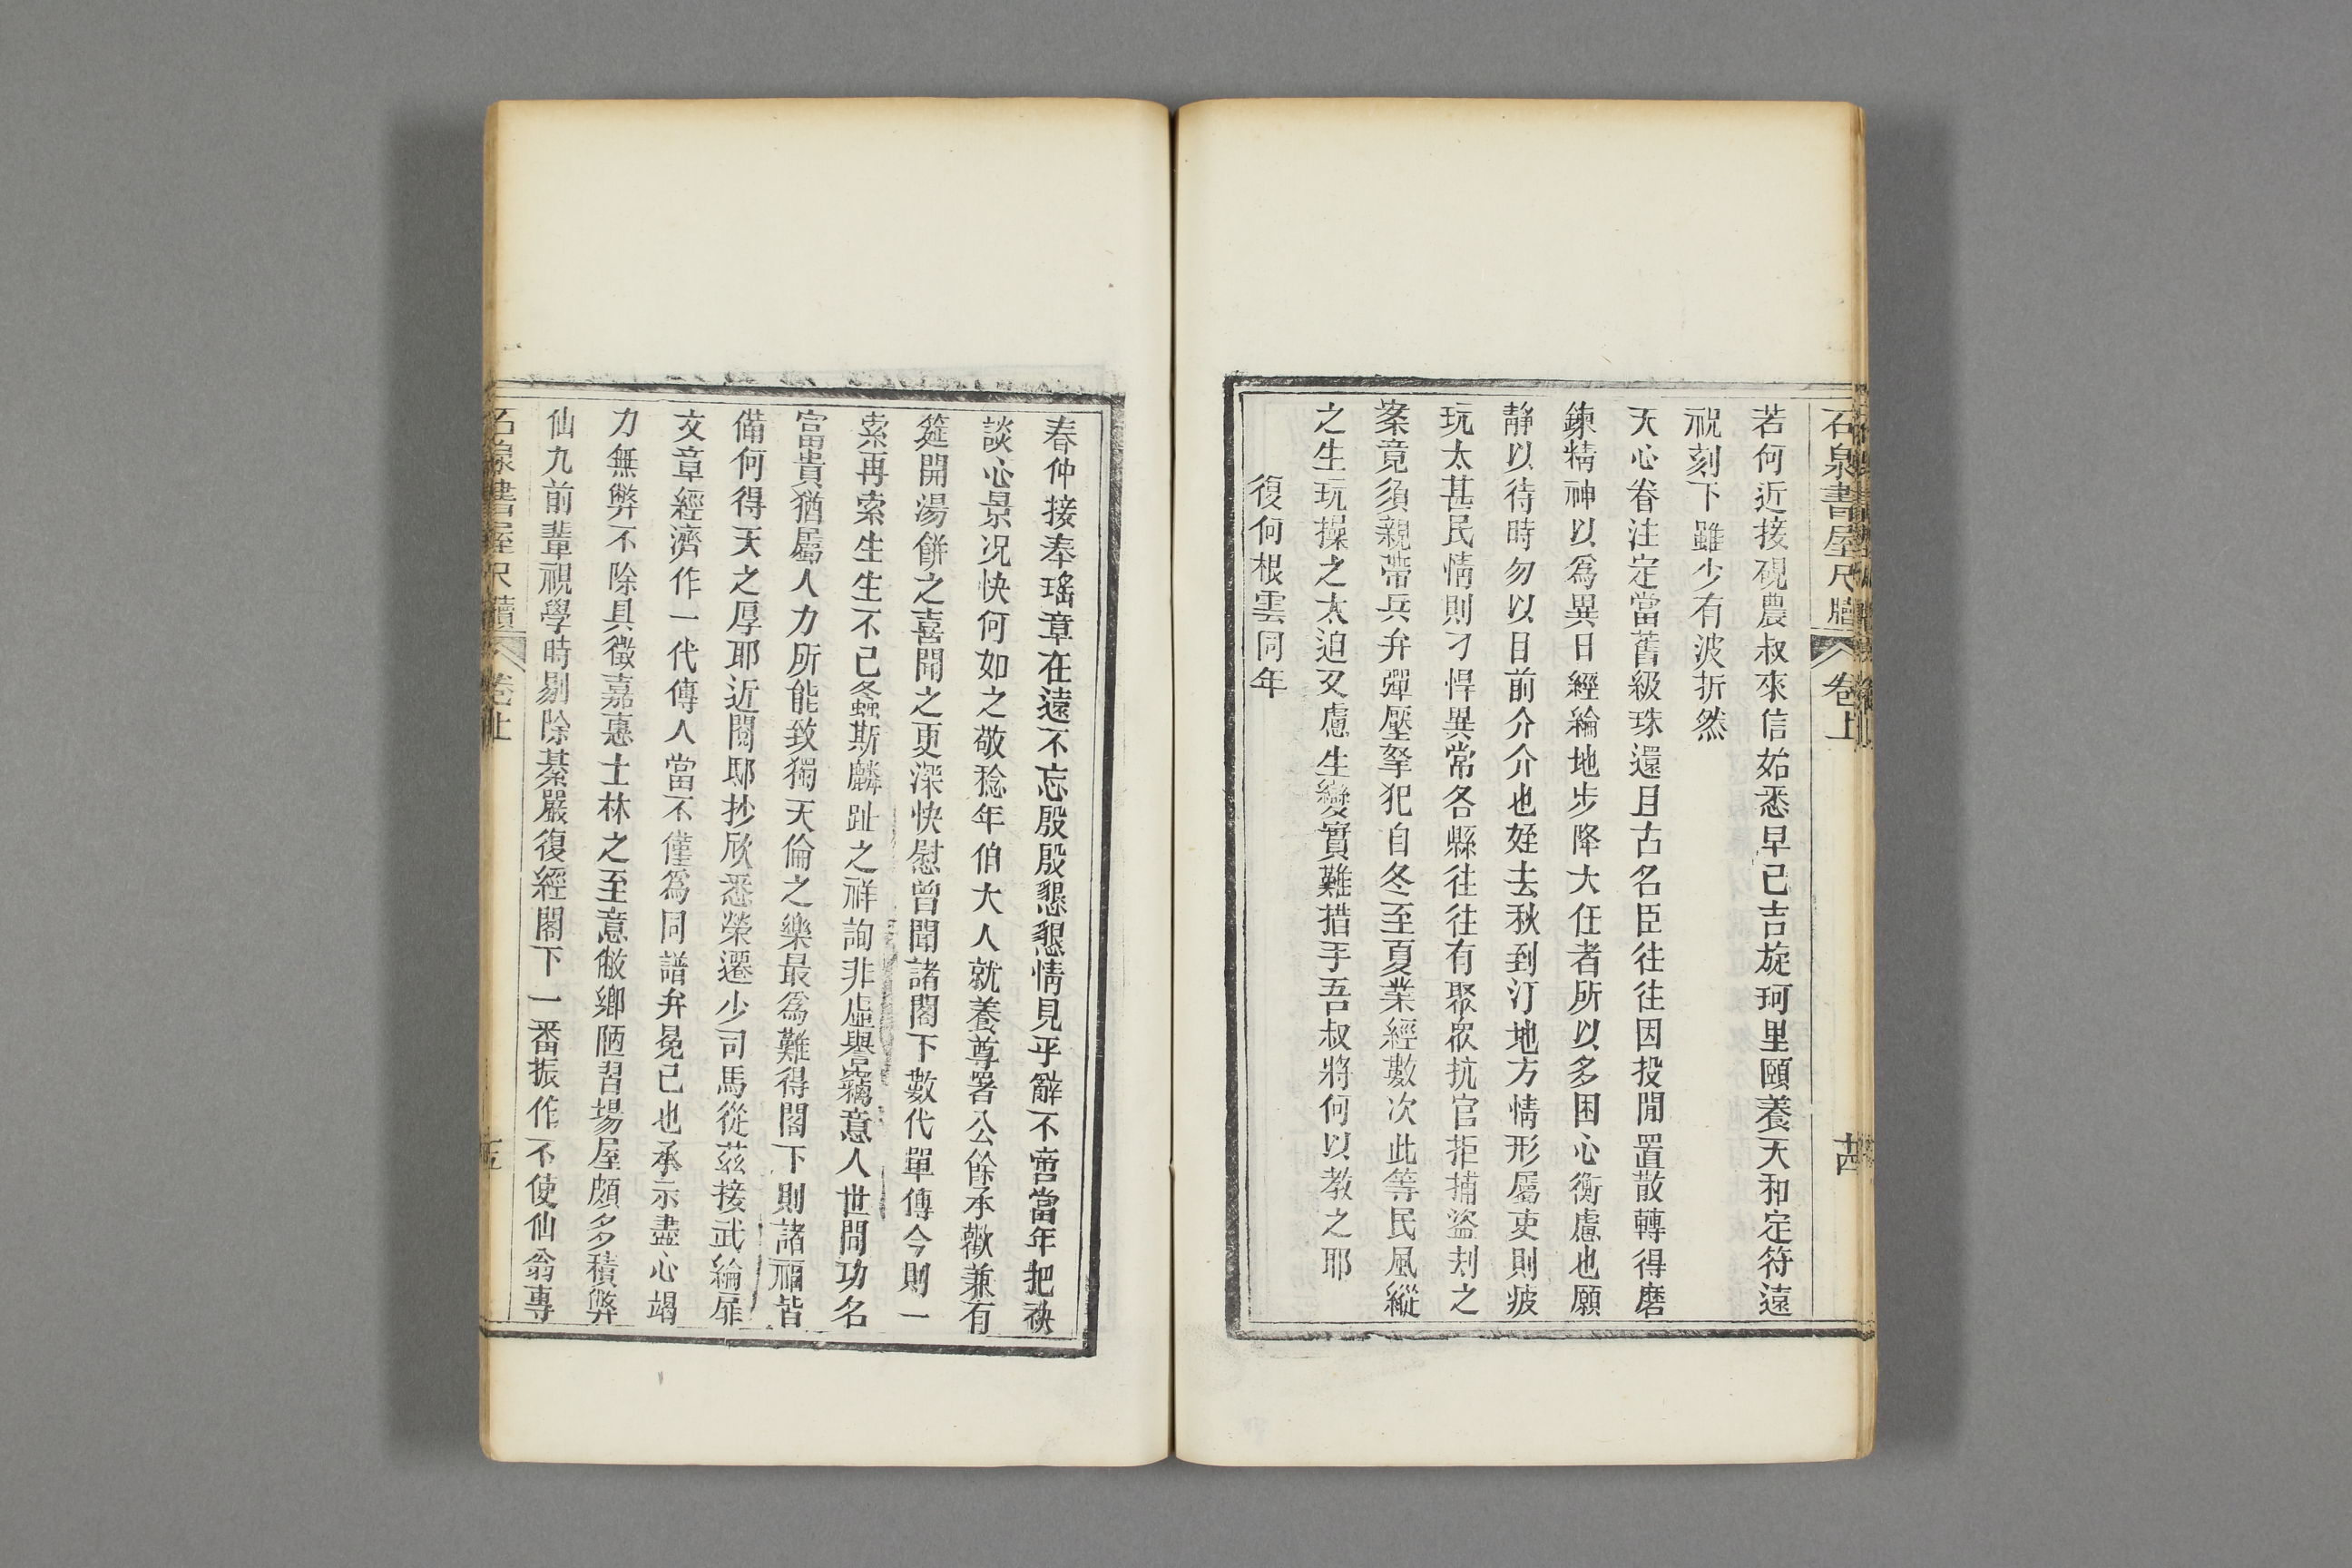 石泉書屋尺牘 卷上 茜
若何近接硯農叔來信始悉早已吉旋珂里頤養天和定符遠
祝刻下雖少有波折然
天心眷注定當舊級珠還且古名臣往往因投閒置散轉得磨
鍊精神以爲異日經綸地步降大任者所以多困心衡慮也願
靜以待時勿以目前介介也姪去秋到汀地方情形屬吏則疲
玩太甚民情則刁悍異常各縣往往有聚衆抗官拒捕盜刦之
案竟須親帶兵弁彈壓拏犯自冬至夏業經數次此等民風縱
之生玩操之太迫又慮生變實難措手吾叔將何以教之耶
復何根雲同年
春仲接奉瑤章在遠不忘殷殷懇懇情見乎辭不啻當年把袂
談心景況快何如之敬稔年伯大人就養尊署公餘承歡兼有
筵開湯餅之喜聞之更深快慰曾聞諸閣下數代單傳今則一
索再索生生不已螽斯麟趾之祥詢非虛譽竊意人世間功名
富貴猶屬人力所能致獨天倫之樂最爲難得閣下則諸福皆
備何得天之厚耶近閱邸抄欣悉榮遷少司馬從茲接武綸扉
文章經濟作一代傳人當不僅爲同譜弁冕已也承示盡心竭
力無弊不除具徵嘉惠士林之至意敝鄉陋習場屋頗多積弊
仙九前輩視學時剔除綦嚴復經閣下一番振作不使仙翁專
石泉書屋尺牘 卷上